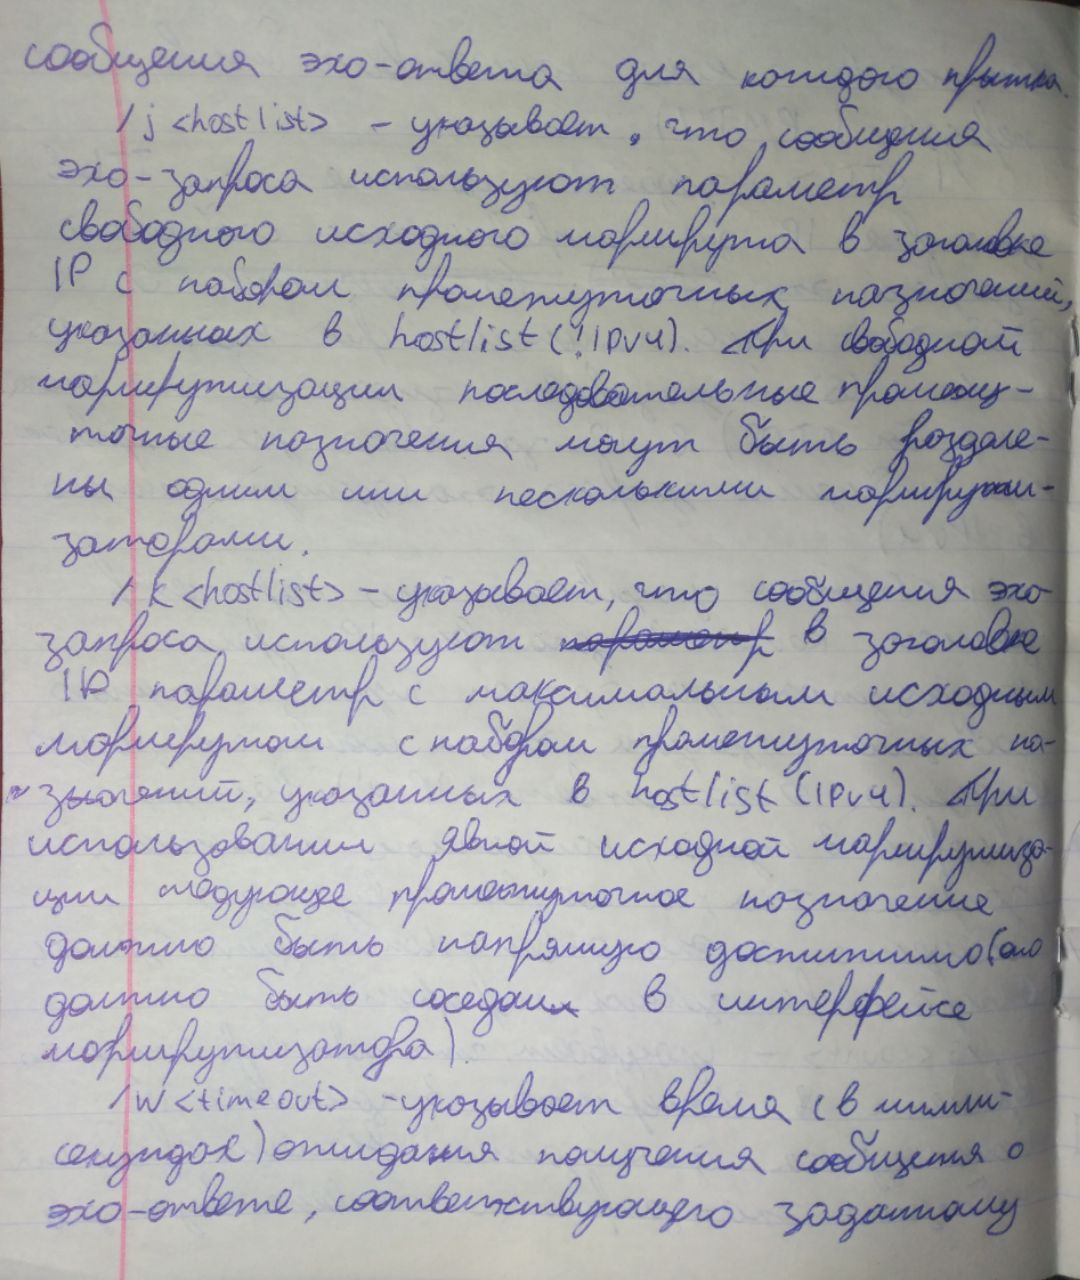 сообщения эхо-ответа для каждого прыжка.
/j <hostlist> - указывает, что сообщения
эхо-запроса используют параметр
свободного исходного маршрута в заголовке
IP с набором промежуточных назначений,
указанных в hostlist (!IPv4). При свободной
маршрутизации последовательные промежу-
точные назначения могут быть разделе-
ны одним или несколькими маршрути-
заторами.
/k <hostlist> - указывает, что сообщения эхо-
запроса используют параметр в заголовке
IP параметр с максимальным исходным
маршрутом с набором промежуточных на-
значений, указанных в hostlist (IPv4). При
использовании явной исходной маршрутиза-
ции следующее промежуточное назначение
должно быть напрямую достижимо (оно
должно быть соседом в интерфейсе
маршрутизатора)
/w <timeout> - указывает время (в милли-
секундах) ожидания получения сообщения о
эхо-ответе, соответствующего заданному